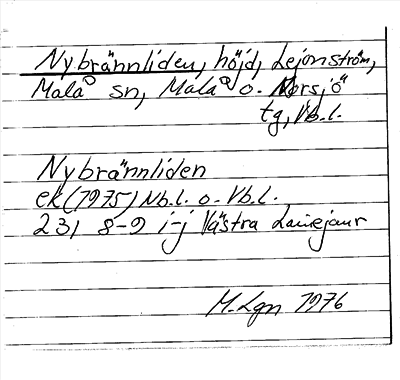 Nybrännliden, höjd, Lejonström,
Malå sn, Malå o. Norsjö
tg, Vb.l.
Nybrännliden
ek (1975) Nb.l. o. Vb.l.
23I 8-9 i-j Västra Lainejaur
M. Lgn 1976